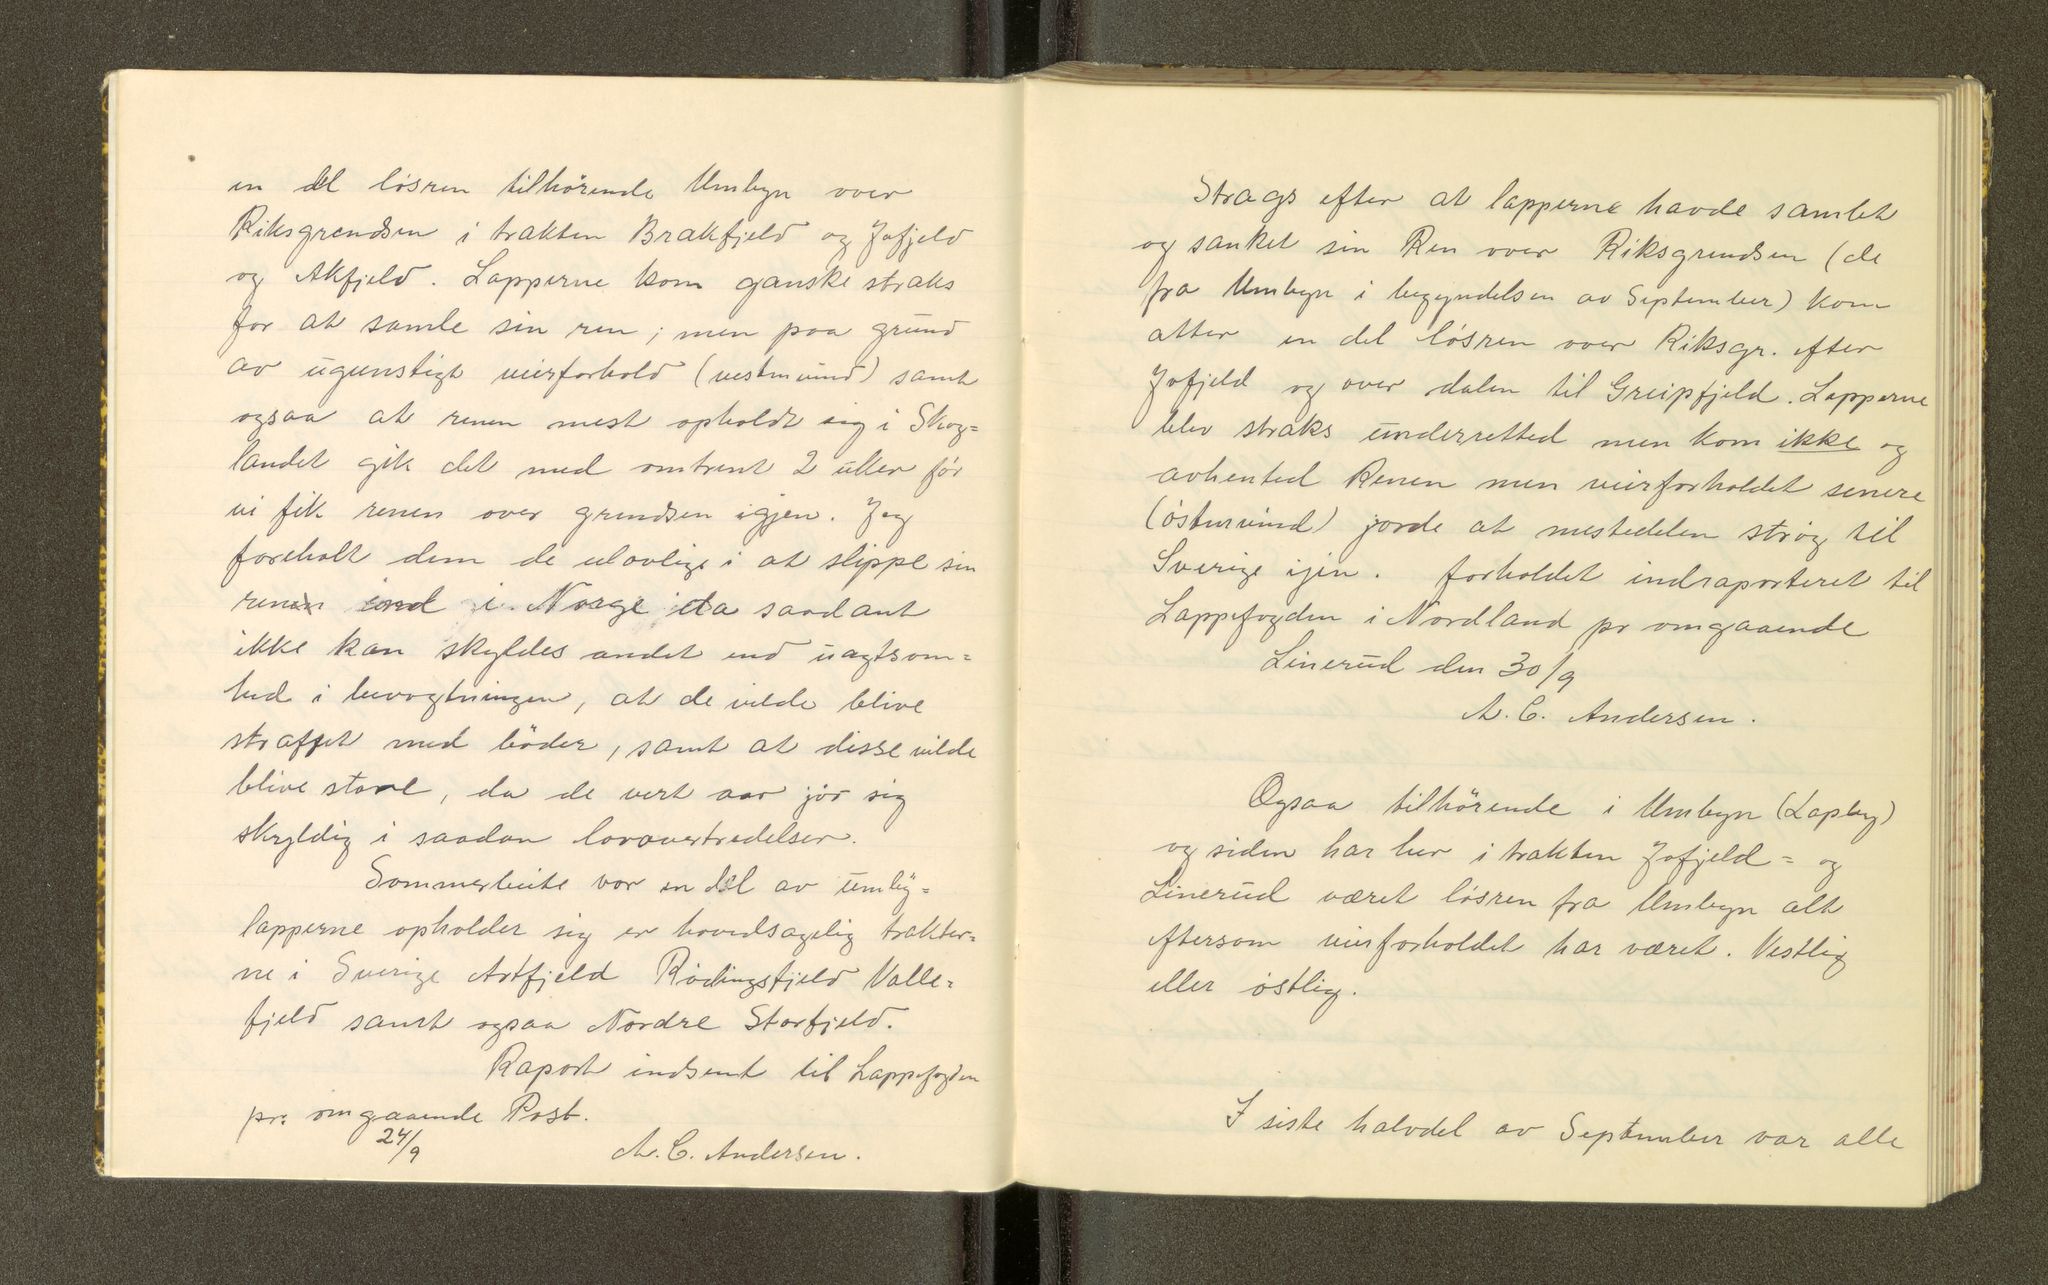 en del løsren tilhørende Umbyn over
Riksgrendsen i trakten Brakfjeld og Jofjeld
og Akfjeld. Lapperne kom ganske straks
for at samle sin ren; men paa grund
av ugunstigt veirforhold (vestenvind) samt
ogsaa at renen mest opholdt sig i Skog=
landet gik det med omtrent 2 uker før
vi fik renen over grendsen igjen. Jeg
foreholt dem de ulovlige i at slippe sin
renen ind i Norge da saadant
ikke kan skyldes andet end uagtsom=
hed i bevogtningen, at de vilde blive
straffet med bøder, samt at disse vilde
blive store, da de vert aar jør sig
skyldig i saadan lovovertredelser.
Sommerbeite vor en del av umby=
lapperne opholder sig er hovedsagelig trakter=
ne i Sverige Artfjeld Rødingsfjeld Valle=
fjeld samt ogsaa Nordre Storfjeld.
Raport indsent til Lappefogden
pr. omgaaende Post.
24/9
A. C. Andersen.
Strags efter at lapperne havde samlet
og sanket sin Ren over Riksgrendsen (de
fra Umbyn i begyndelsen av September) kom
atter en del løsren over Riksgr. efter
Jofjeld og over dalen til Greipfjeld. Lapperne
blev straks underretted men kom ikke og
avhented Renen men veirforholdet senere
(østenvind) jorde at mestedelen strøg til
Sverige ijen. forholdet indraporteret til
Lappefogden i Nordland pr omgaaende
Linerud den 30/9
A. C. Andersen.
Ogsaa tilhørende i Umbyn (Lapby)
og siden har her i trakten Jofjeld= og
Linerud været løsren fra Umbyn alt
eftersom veirforholdet har været. Vestlig
eller østlig.
I siste halvdel av September var alle